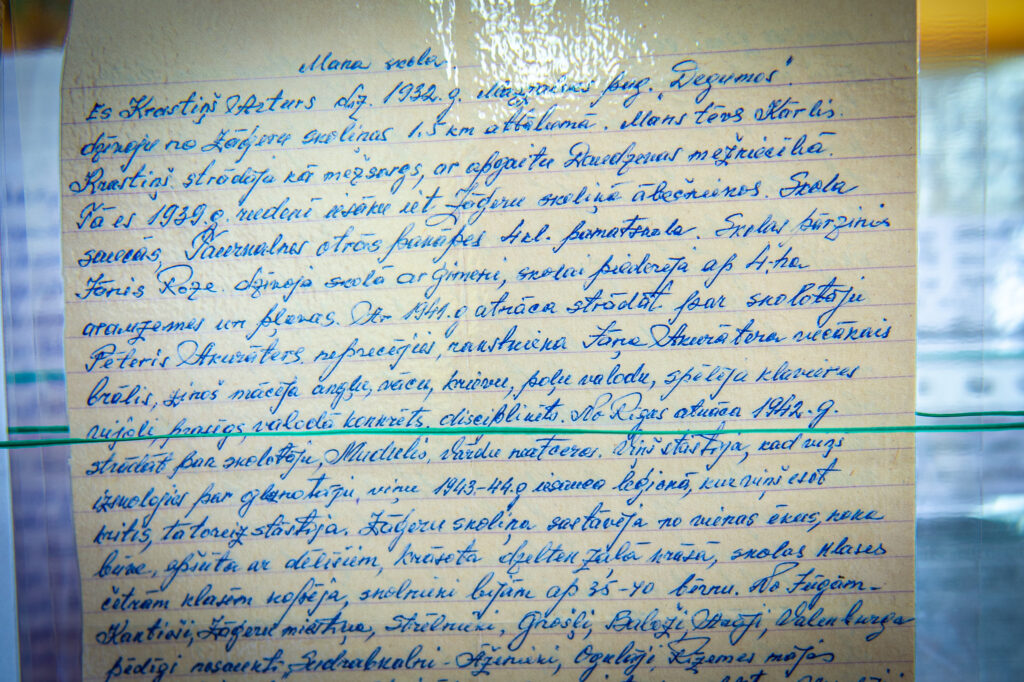 Mana skola.
Es Krastiņš Arturs dz. 1932. g. Mazsalacas pag. "Degumos".
dzīvoju no Zāģeru skoliņas 1.5 km attālumā. Mans tēvs Kārlis
Krastiņš strādāja kā mežsargs, ar apgaitu mežniecībā.
Tā es 1939. g. rudenī iesāku iet Zāģeru skoliņā ābečniekos. Skola
saucās, otrās pakāpes 4 kl. pamatskola. Skolas pārzinis
Jānis Roze dzīvoja skolā ar ģimeni, skolai piederēja ap 4. ha
aramzemes un pļavas. Ar 1941. g atnāca strādāt par skolotāju
Pēteris Akurāters, neprecējies, rakstnieka Jāņa Akurātera vecākais
brālis, mācēja angļu, vācu, krievu, poļu valodu, spēlēja klavieres
vijoli prasīgs, valodā konkrēts, disciplinēts. No Rīgas atnāca 1942. g.
strādāt par skolotāju, vārdu neatceros. Viņš stāstīja, kad viņš
izskolojies par gleznotāju, viņu 1943-44. g iesauca leģionā, kur viņš esot
kritis, tā toreiz stāstīja. Zāģeru skoliņa sastāvēja no vienas ēkas, koka
būve, apšūta ar dēlīšiem, krāsota dzelten zaļā krāsā, skolas klases
četrām klasēm kopēja, skolnieki bijām ap 35-40 bērnu. No
Zāģeru Strēlnieki, Grošļi, Baloži, Valenburga
pēdīgi nosaukti, Sudrabkalni - Ogulāji, mājās